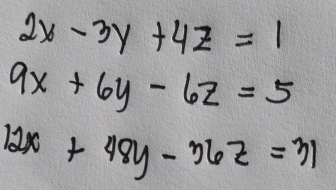 2x - 3y + 4z = 1
9x + 6y - 6z = 5
12x + 48y - 36z = 31